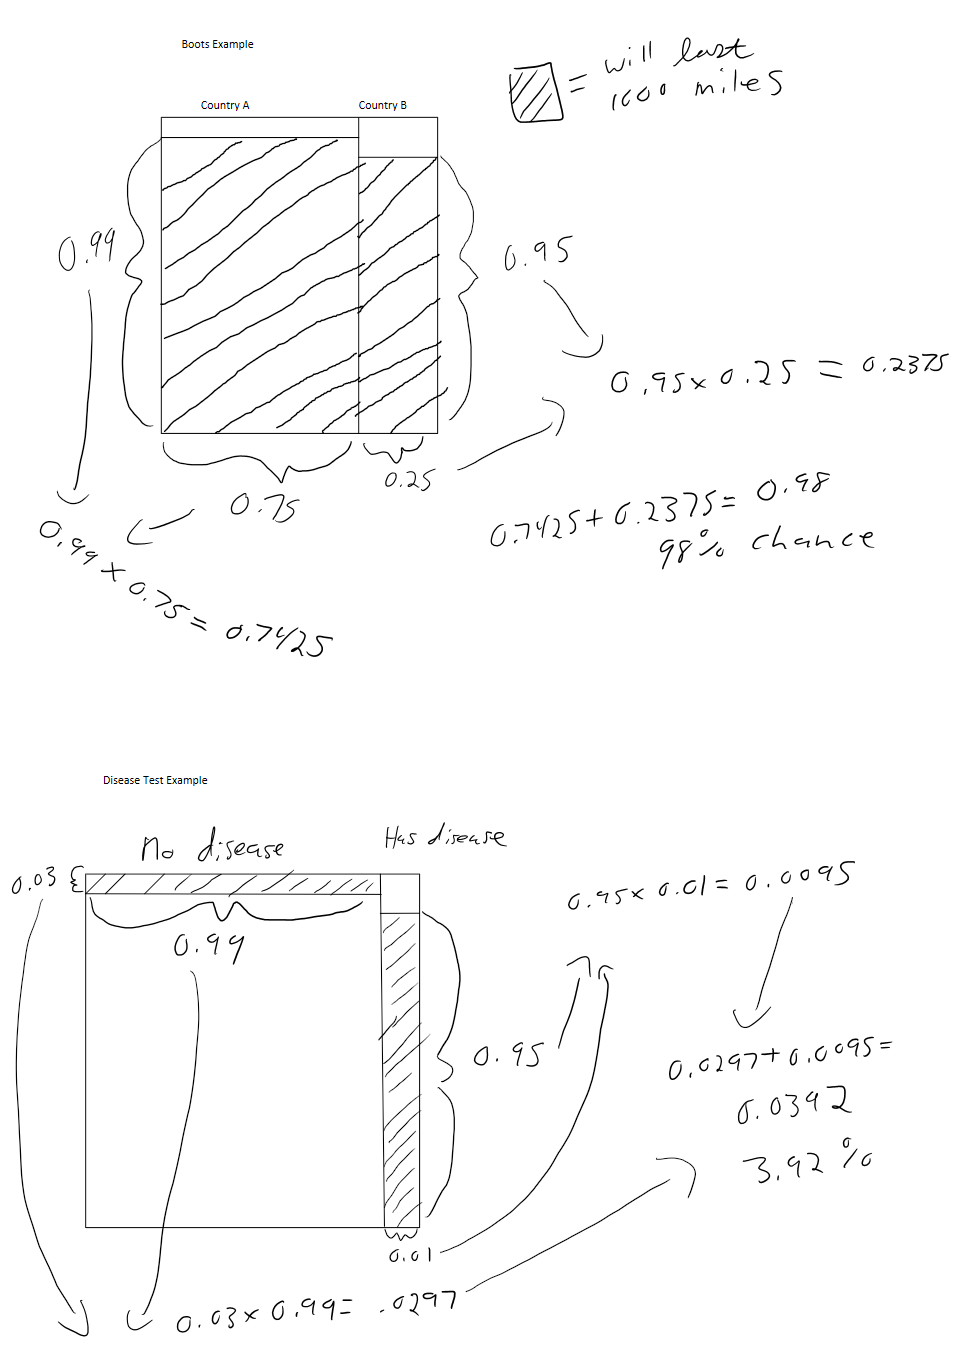 Boots Example
= will last
1000 miles
Country A
Country B
0.99
0.95
0.95 x 0.25 = 0.2375
0.75
0.25
0.7425 + 0.2375 = 0.98
98% chance
0.99 x 0.75 = 0.7425
Disease Test Example
No disease
Has disease
0.03
0.95 x 0.01 = 0.0095
0.99
0.95
0.0297 + 0.0095 =
0.0392
3.92 %
0.01
0.03 x 0.99 = .0297